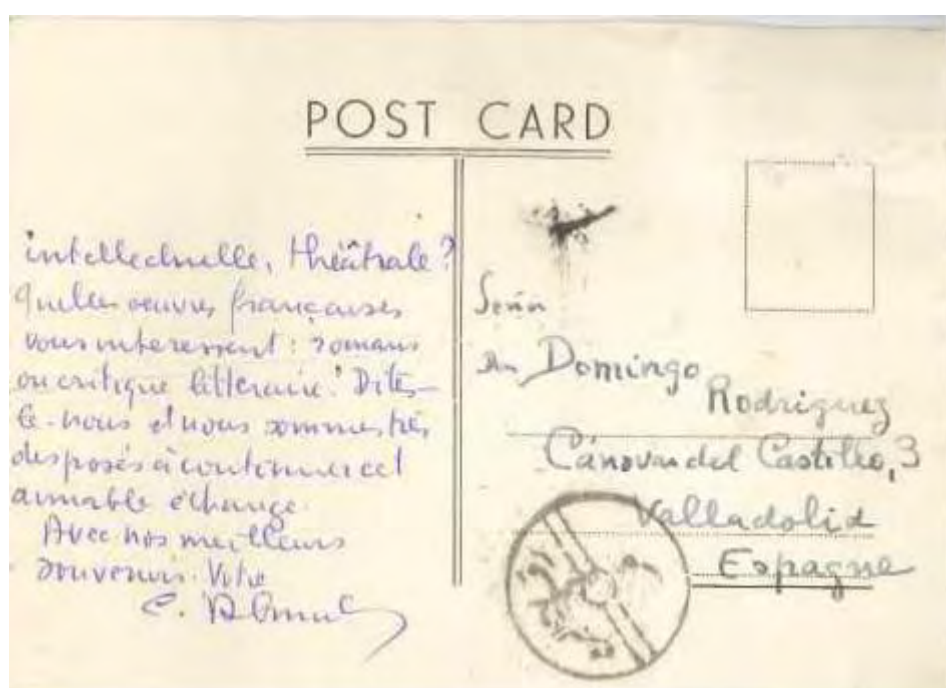 POST CARD
intellectuelle, théâtrale?
Quelles œuvres françaises
vous interessent : romans
ou critique litteraire? Dites-
le-nous et nous sommes très
disposés à continuer cet
aimable échange.
Avec nos meilleurs
souvenirs. Votre
C.
Señor
Dn Domingo
Rodriguez
Cánovas del Castillo, 3
Valladolid
Espagne